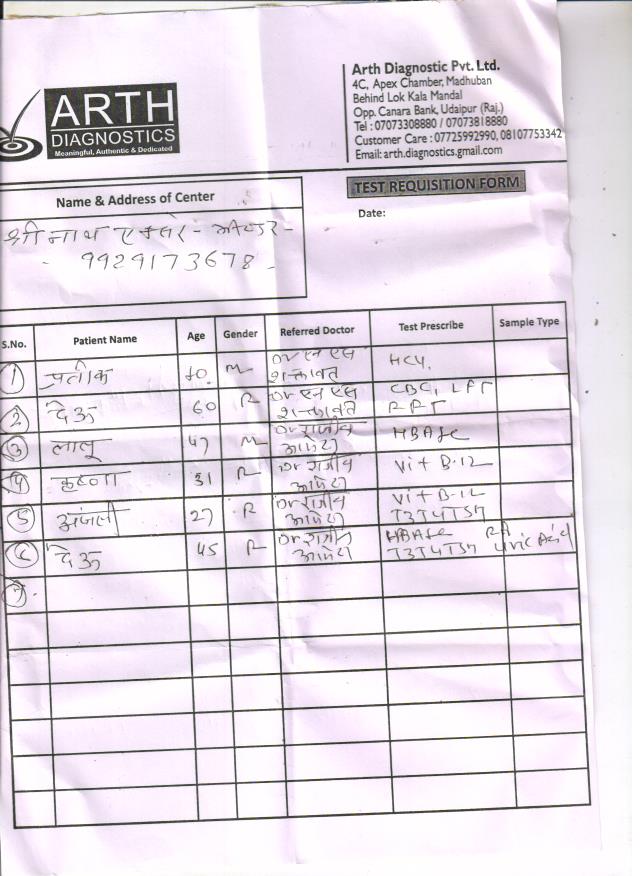 ARTH
DIAGNOSTICS
Meaningful, Authentic & Dedicated
Arth Diagnostic Pvt. Ltd.
4C, Apex Chamber, Madhuban
Behind Lok Kala Mandal
Opp. Canara Bank, Udaipur (Raj.)
Tel : 07073308880 / 07073818880
Customer Care : 07725992990, 08107753342
Email: arth.diagnostics.gmail.com
TEST REQUISITION FORM
Date:
Name & Address of Center
श्री नाथ
9929173678
S.No. Patient Name Age Gender Referred Doctor Test Prescribe Sample Type
1 प्रतीक 40 M Dr एन एस शक्तावत HCY,
2 देऊ 60 F Dr एन एस शक्तावत CBC, LFT RFT
3 लालू 47 M Dr राजीव आमेटा HBA1c
4 कृष्णा 31 F Dr राजीव आमेटा Vit B-12
5 अंजली 27 F Dr राजीव आमेटा Vit B-12 T3T4TSH
6 देऊ 45 F Dr राजीव आमेटा HBA1c RA T3T4TSH Uric Acid
7.